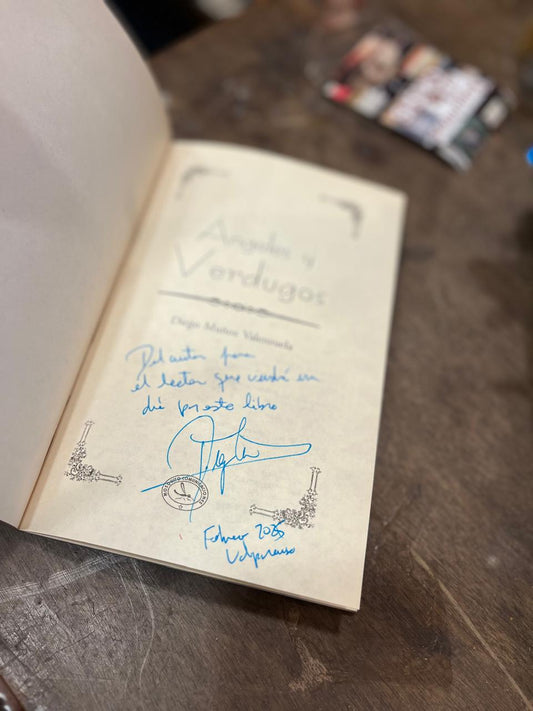 Angeles y
Verdugos
Diego Muñoz Valenzuela
Del autor para
el lector que vendrá un
día por este libro
Febrero 2025
Valparaíso